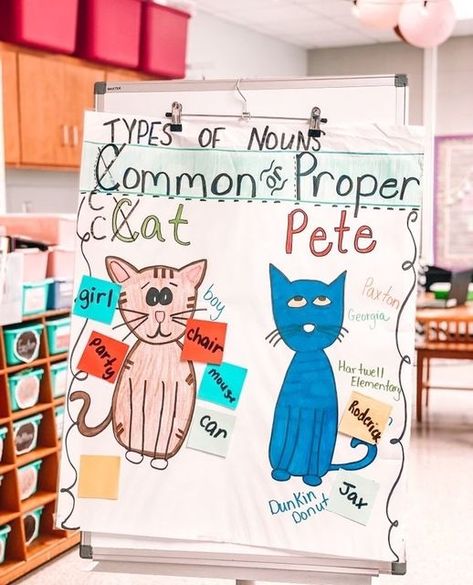 TYPES OF NOUNS
Common or Proper
Cat
Pete
girl
boy
party
chair
mouse
car
Paxton
Georgia
Hartwell
Elementary
Roderick
Dunkin
Donut
Jax